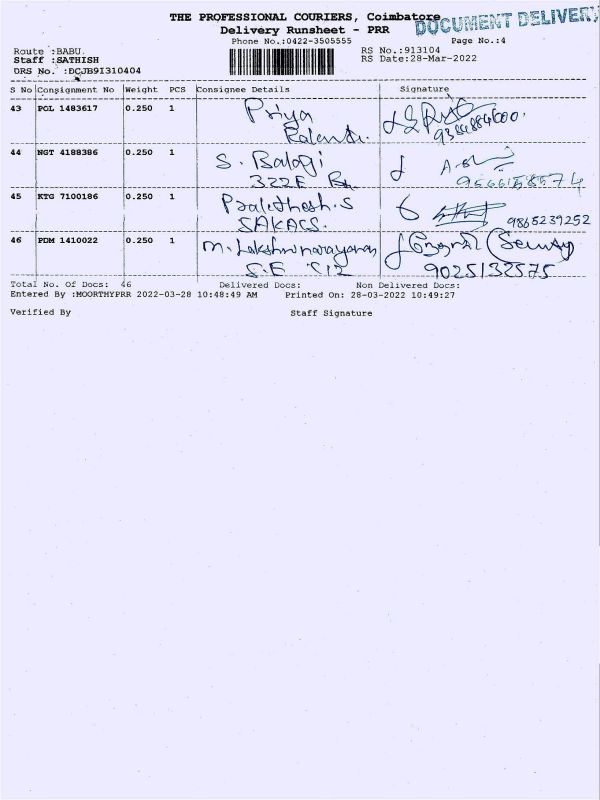 THE PROFESSIONAL COURIERS, Coimbatore
DOCUMENT DELIVERY
Delivery Runsheet - PRR
Phone No.:0422-3505555
Page No.:4
Route :BABU.
RS No.:913104
Staff :SATHISH
RS Date:28-Mar-2022
DRS No. :DCJB91310404
S No Consignment No Weight PCS Consignee Details Signature
43 POL 1483617 0.250 1 Priya
44 NGT 4188386 0.250 1 S. Balaji
322E
9566158574
45 KTG 7100186 0.250 1
SAKACS.
9865239252
46 PDM 1410022 0.250 1 M. Lakshminarayanan (Security)
S.E
9025132575
Total No. Of Docs: 46 Delivered Docs: Non Delivered Docs:
Entered By :MOORTHYPRR 2022-03-28 10:48:49 AM Printed On: 28-03-2022 10:49:27
Verified By Staff Signature